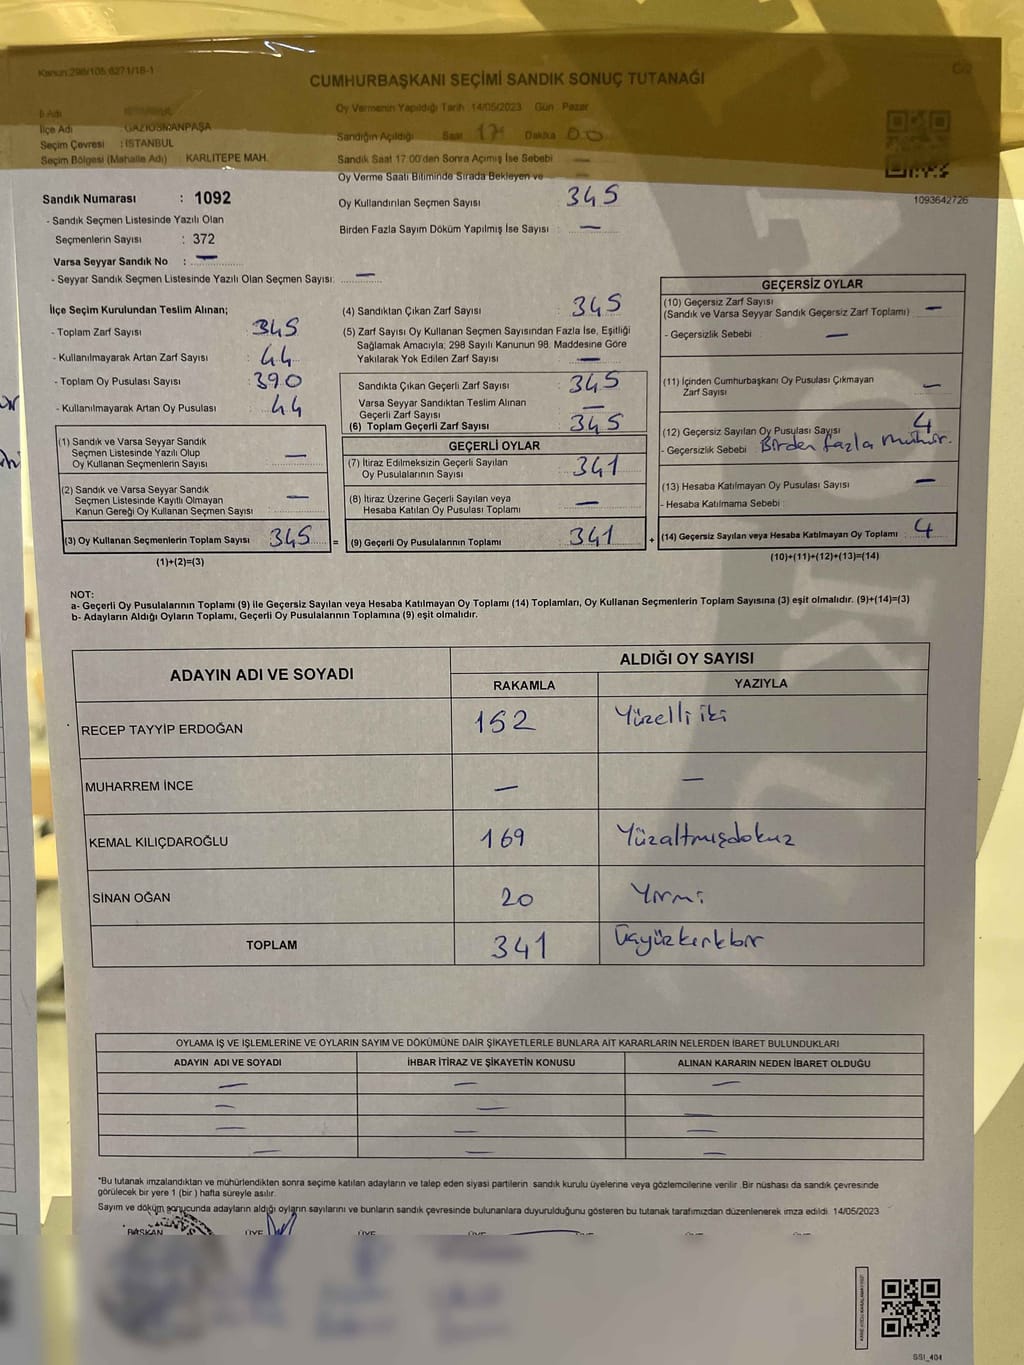 Kanun:298/105:6271/18-1
C/2
CUMHURBAŞKANI SEÇİMİ SANDIK SONUÇ TUTANAĞI
İl Adı
İlçe Adı : GAZİOSMANPAŞA
Seçim Çevresi : İSTANBUL
Seçim Bölgesi (Mahalle Adı) KARLITEPE MAH.
Oy Vermenin Yapıldığı Tarih 14/05/2023 Gün Pazar
Sandığın Açıldığı Saat 17 Dakika 00
Sandık Saat 17.00'den Sonra Açımış İse Sebebi —
Oy Verme Saati Bitiminde Sırada Bekleyen ve
Oy Kullandırılan Seçmen Sayısı 345
Birden Fazla Sayım Döküm Yapılmış İse Sayısı : —
1093642726
Sandık Numarası : 1092
- Sandık Seçmen Listesinde Yazılı Olan
Seçmenlerin Sayısı : 372
Varsa Seyyar Sandık No : —
- Seyyar Sandık Seçmen Listesinde Yazılı Olan Seçmen Sayısı: —
İlçe Seçim Kurulundan Teslim Alınan;
- Toplam Zarf Sayısı : 345
- Kullanılmayarak Artan Zarf Sayısı : 44
- Toplam Oy Pusulası Sayısı : 390
- Kullanılmayarak Artan Oy Pusulası : 44
(1) Sandık ve Varsa Seyyar Sandık
Seçmen Listesinde Yazılı Olup
Oy Kullanan Seçmenlerin Sayısı —
(2) Sandık ve Varsa Seyyar Sandık
Seçmen Listesinde Kayıtlı Olmayan
Kanun Gereği Oy Kullanan Seçmen Sayısı —
(3) Oy Kullanan Seçmenlerin Toplam Sayısı 345 =
(1)+(2)=(3)
(4) Sandıktan Çıkan Zarf Sayısı 345
(5) Zarf Sayısı Oy Kullanan Seçmen Sayısından Fazla İse, Eşitliği
Sağlamak Amacıyla; 298 Sayılı Kanunun 98. Maddesine Göre
Yakılarak Yok Edilen Zarf Sayısı —
Sandıkta Çıkan Geçerli Zarf Sayısı 345
Varsa Seyyar Sandıktan Teslim Alınan
Geçerli Zarf Sayısı —
(6) Toplam Geçerli Zarf Sayısı 345
GEÇERLİ OYLAR
(7) İtiraz Edilmeksizin Geçerli Sayılan
Oy Pusulalarının Sayısı 341
(8) İtiraz Üzerine Geçerli Sayılan veya
Hesaba Katılan Oy Pusulası Toplamı —
(9) Geçerli Oy Pusulalarının Toplamı 341 +
GEÇERSİZ OYLAR
(10) Geçersiz Zarf Sayısı
(Sandık ve Varsa Seyyar Sandık Geçersiz Zarf Toplamı) —
- Geçersizlik Sebebi : —
(11) İçinden Cumhurbaşkanı Oy Pusulası Çıkmayan
Zarf Sayısı —
(12) Geçersiz Sayılan Oy Pusulası Sayısı 4
- Geçersizlik Sebebi Birden fazla mühür.
(13) Hesaba Katılmayan Oy Pusulası Sayısı —
- Hesaba Katılmama Sebebi
(14) Geçersiz Sayılan veya Hesaba Katılmayan Oy Toplamı : 4
(10)+(11)+(12)+(13)=(14)
NOT:
a- Geçerli Oy Pusulalarının Toplamı (9) ile Geçersiz Sayılan veya Hesaba Katılmayan Oy Toplamı (14) Toplamları, Oy Kullanan Seçmenlerin Toplam Sayısına (3) eşit olmalıdır. (9)+(14)=(3)
b- Adayların Aldığı Oyların Toplamı, Geçerli Oy Pusulalarının Toplamına (9) eşit olmalıdır.
ADAYIN ADI VE SOYADI
ALDIĞI OY SAYISI
RAKAMLA YAZIYLA
RECEP TAYYİP ERDOĞAN 152 Yüzelli iki
MUHARREM İNCE — —
KEMAL KILIÇDAROĞLU 169 Yüzaltmışdokuz
SİNAN OĞAN 20 Yirmi
TOPLAM 341 Üçyüzkırkbir
OYLAMA İŞ VE İŞLEMLERİNE VE OYLARIN SAYIM VE DÖKÜMÜNE DAİR ŞİKAYETLERLE BUNLARA AİT KARARLARIN NELERDEN İBARET BULUNDUKLARI
ADAYIN ADI VE SOYADI İHBAR İTİRAZ VE ŞİKAYETİN KONUSU ALINAN KARARIN NEDEN İBARET OLDUĞU
— — —
— — —
— — —
— — —
"Bu tutanak imzalandıktan ve mühürlendikten sonra seçime katılan adayların ve talep eden siyasi partilerin sandık kurulu üyelerine veya gözlemcilerine verilir. Bir nüshası da sandık çevresinde
görülecek bir yere 1 (bir ) hafta süreyle asılır.
Sayım ve döküm sonucunda adayların aldığı oyların sayılarını ve bunların sandık çevresinde bulunanlara duyurulduğunu gösteren bu tutanak tarafımızdan düzenlenerek imza edildi. 14/05/2023
BAŞKAN ÜYE ÜYE
SSI_404